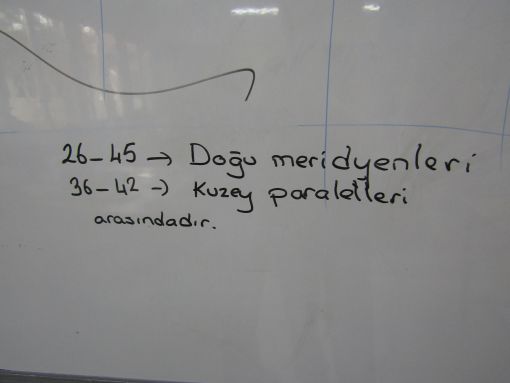 26-45 → Doğu meridyenleri
36-42 → Kuzey paralelleri
arasındadır.